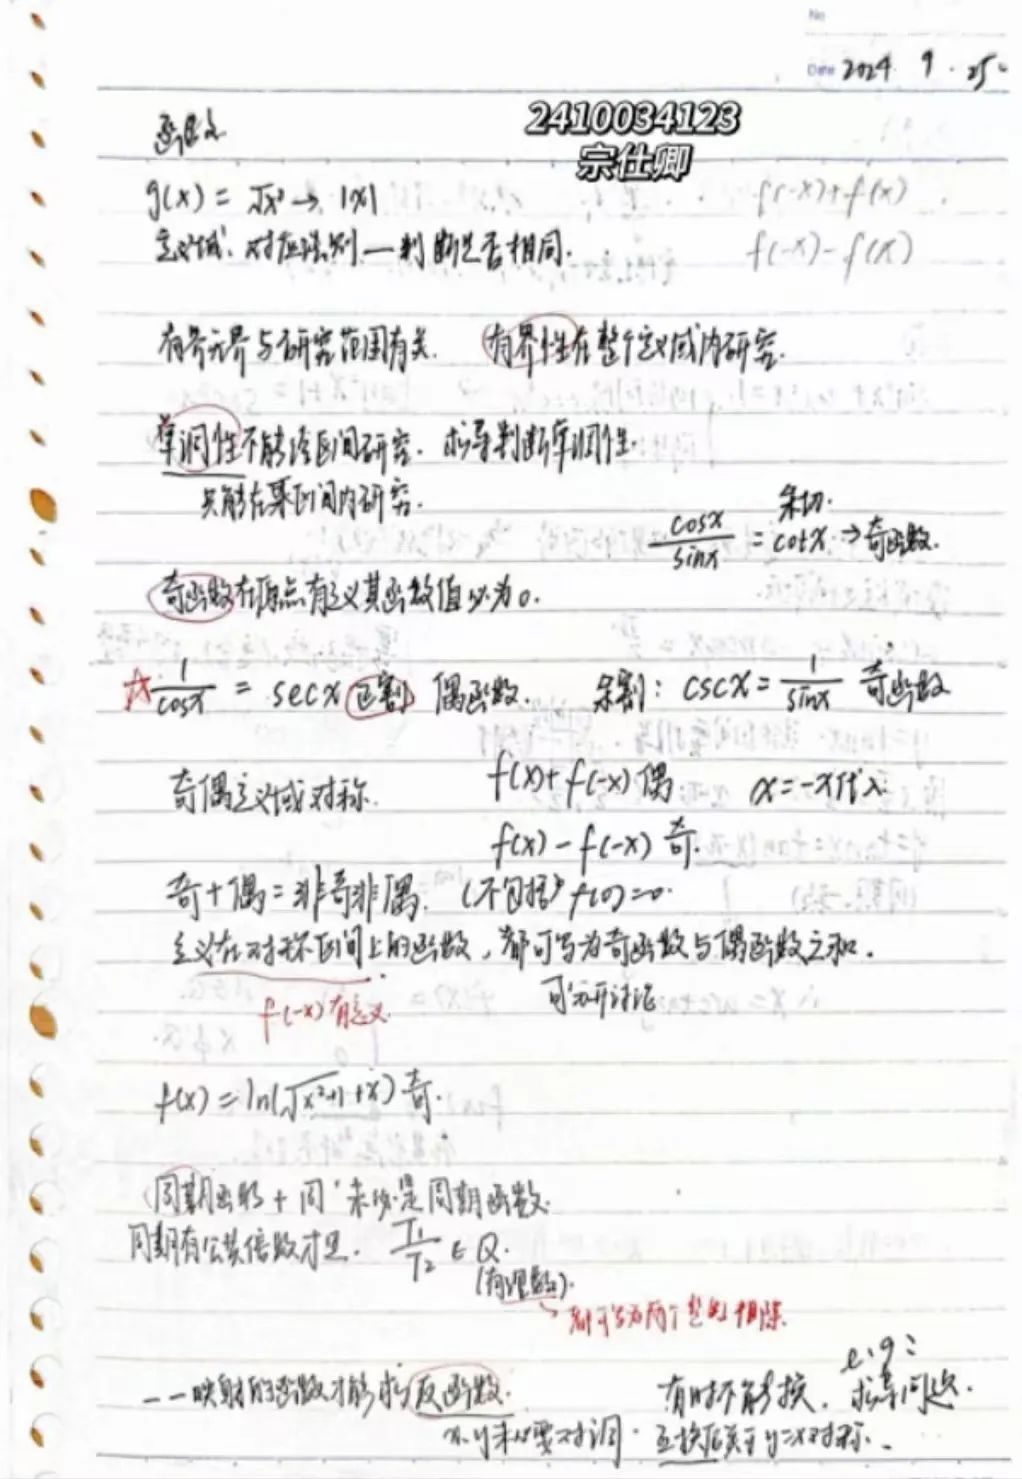 No
Date 2024 9.25.
2410034123
宗仕卿
函数
g(x) = √x² → |x|
f(-x)+f(x)
定义域、对应法则—判断是否相同.
f(-x)-f(x)
有界无界与研究范围有关. 有界性在整个定义域内研究.
单调性不能跨区间研究. 求导判断单调性.
只能在某区间内研究.
余切.
cosx/sinx = cotx → 奇函数.
奇函数在原点有定义其函数值必为0.
☆ 1/cosx = secx 正割 偶函数. 余割: cscx = 1/sinx 奇函数
奇偶定义域对称. f(x)+f(-x) 偶 x=-x代入
f(x)-f(-x) 奇.
奇+偶=非奇非偶. (不包括) f(0)=0.
定义在对称区间上的函数,都可写为奇函数与偶函数之和.
f(-x)有意义. 可分开讨论
f(x)=ln(√x²+1+x) 奇.
周期函数+周·未必是周期函数.
周期有公共倍数才是. T₁/T₂ ∈ Q.
(有理数).
都可写为两个整数相除.
e.g:
一一映射的函数才能求反函数. 有时不能换. 求导问题.
x.y未必要对调. 互换后关于y=x对称.